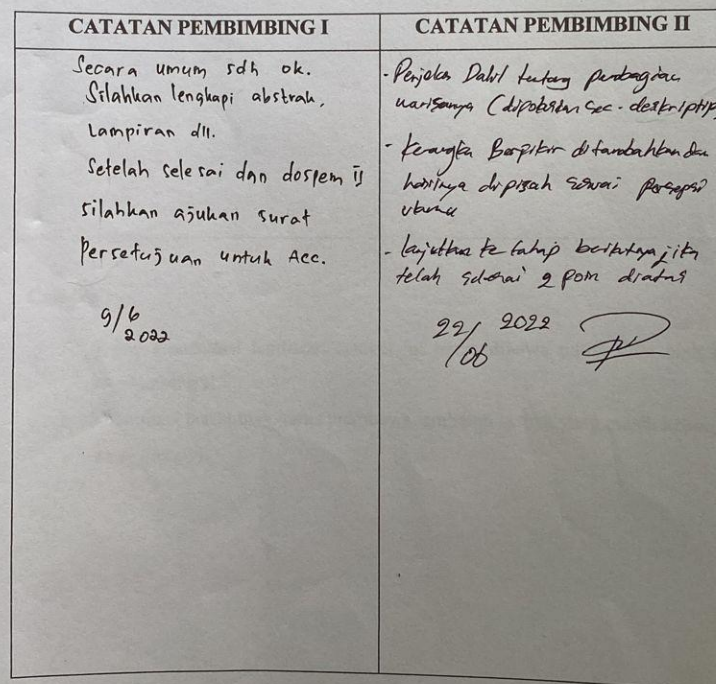 CATATAN PEMBIMBING I
Secara umum sdh ok.
Silahkan lengkapi abstrak,
Lampiran dll.
Setelah selesai dan dospem II
silahkan ajukan surat
Persetujuan untuk Acc.
9/6
2022
CATATAN PEMBIMBING II
- Penjelas Dalil tentang pembagian
warisanya (dipokuskan sec. deskriptip
- Kerangka Berpikir ditambahkan dan
hasilnya dipisah sesuai persepsi
ulama
- lanjutkan ke tahap berikutnya jika
telah selesai 2 poin diatas
22/06 2022